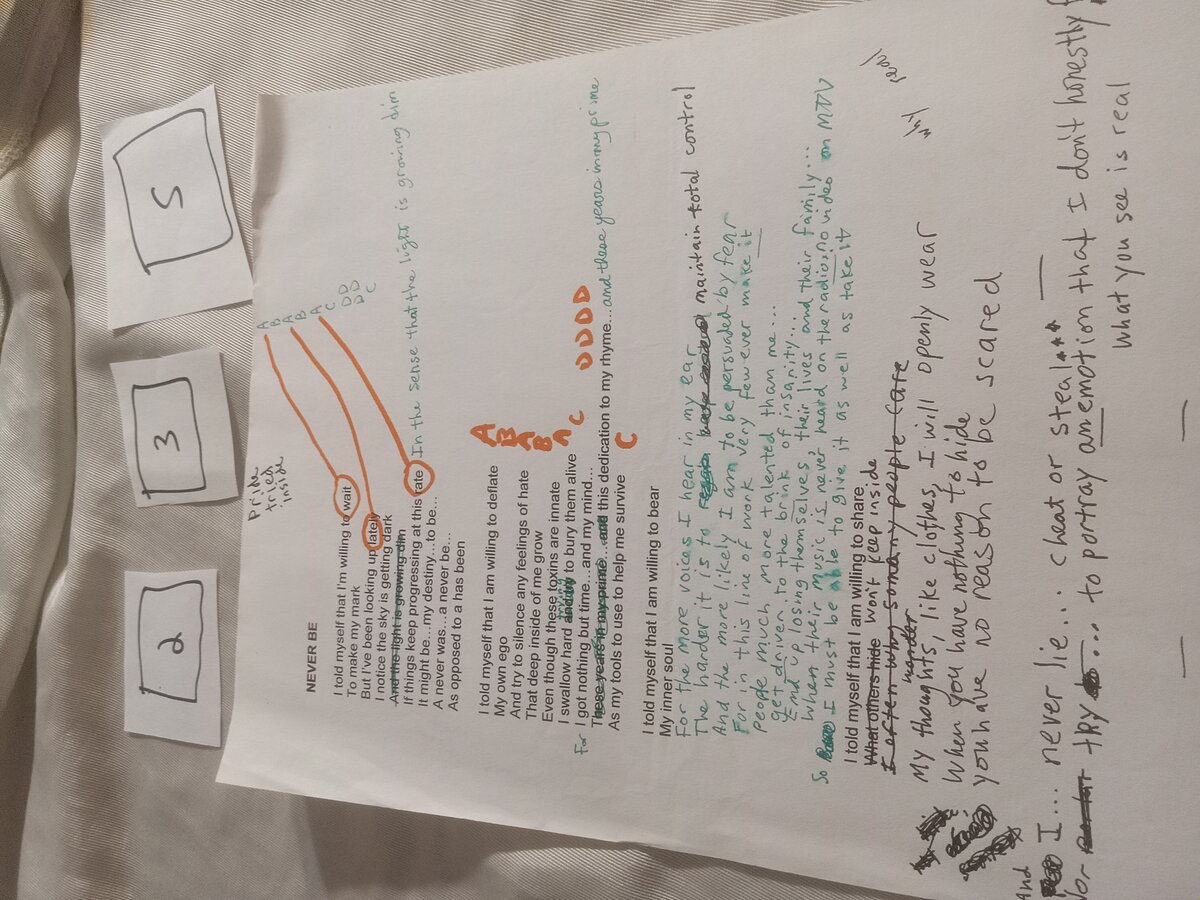 2
3
5
A
B
A
B
A
C
D D
D D
C
Pride
tried
inside
NEVER BE
I told myself that I'm willing to wait
To make my mark
But I've been looking up lately
I notice the sky is getting dark
And the light is growing dim
If things keep progressing at this rate In the sense that the light is growing dim
It might be…my destiny…to be…
A never was…a never be…
As opposed to a has been
I told myself that I am willing to deflate
My own ego
And try to silence any feelings of hate
That deep inside of me grow
Even though these toxins are innate
I swallow hard trying to bury them alive
For I got nothing but time…and my mind…
These years in my prime…and this dedication to my rhyme… and these years in my prime
As my tools to use to help me survive
A
B
A
B
A
C
D D D D
C
I told myself that I am willing to bear
My inner soul
For the more voices I hear in my ear
The harder it is to maintain total control
And the more likely I am to be persuaded by fear
For in this line of work very few ever make it
People much more talented than me...
get driven to the brink of insanity...
End up losing themselves, their lives and their family...
When their music is never heard on the radio, no video on MTV
So I must be able to give it as well as take it
I told myself that I am willing to share
What others hide won't keep inside
I often why so many people care
wonder
My thoughts, like clothes, I will openly wear
When you have nothing to hide
you have no reason to be scared
And
I... never lie... cheat or steal***
Nor try to... to portray an emotion that I don't honestly
what you see is real